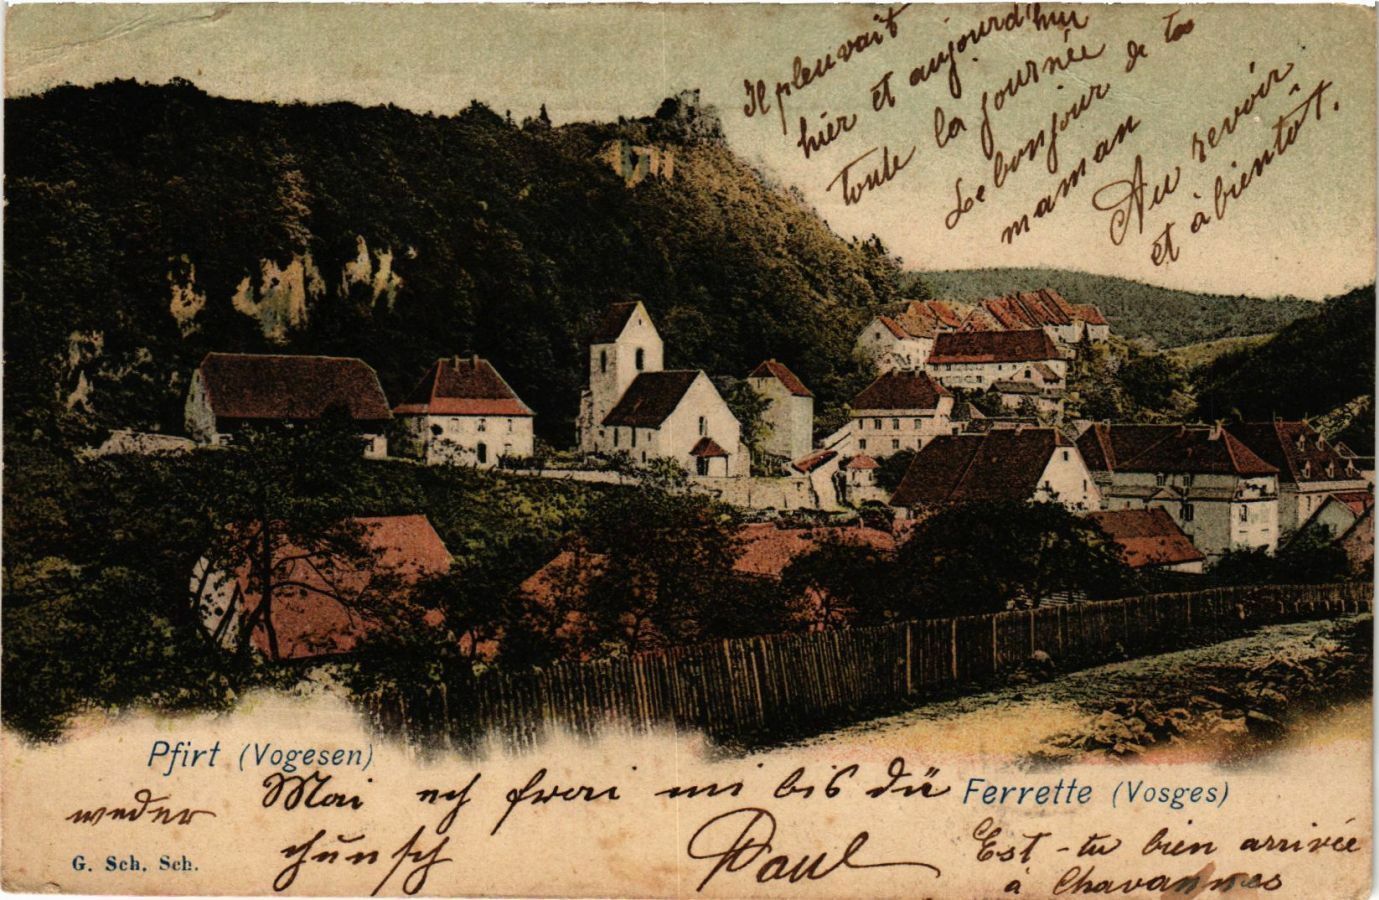 Il pleuvait
hier et aujourd'hui
toute la journée
Le bonjour de ta
maman
Au revoir
et à bientôt.
Pfirt (Vogesen)
Ferrette (Vosges)
Mai ich frai mi bis dü
weder
chunsch
Paul
Est-tu bien arrivée
à Chavannes
G. Sch. Sch.